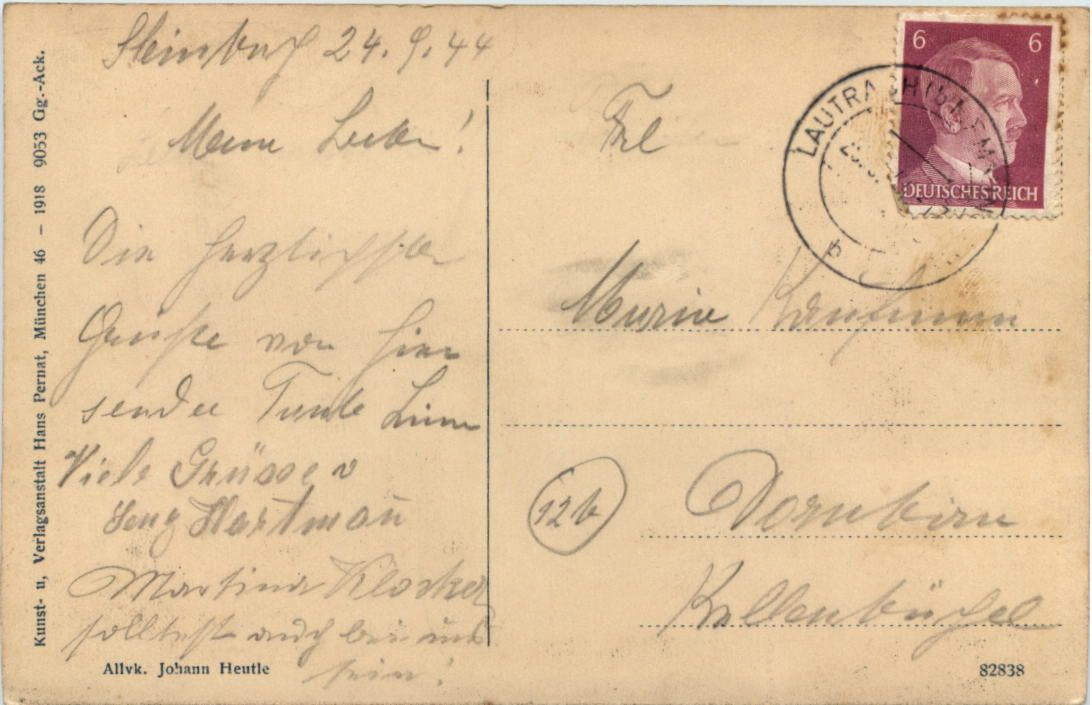 Kunst- u, Verlagsanstalt Hans Pernat, München 46 – 1918 9053 Gg.-Ack.
Steinbach 24.9.44
Meine Liebe!
Die herzlichsten
Grüße von hier
sendet Tante
Viele Grüsse v
Hartman
Martina Klocker
solltest auch bei uns
sein!
Allvk. Johann Heutle
6 6
DEUTSCHES REICH
LAUTRACH
b
Frl
Maria Kaufmann
12b
Dornbirn
Kellenbühel
82838